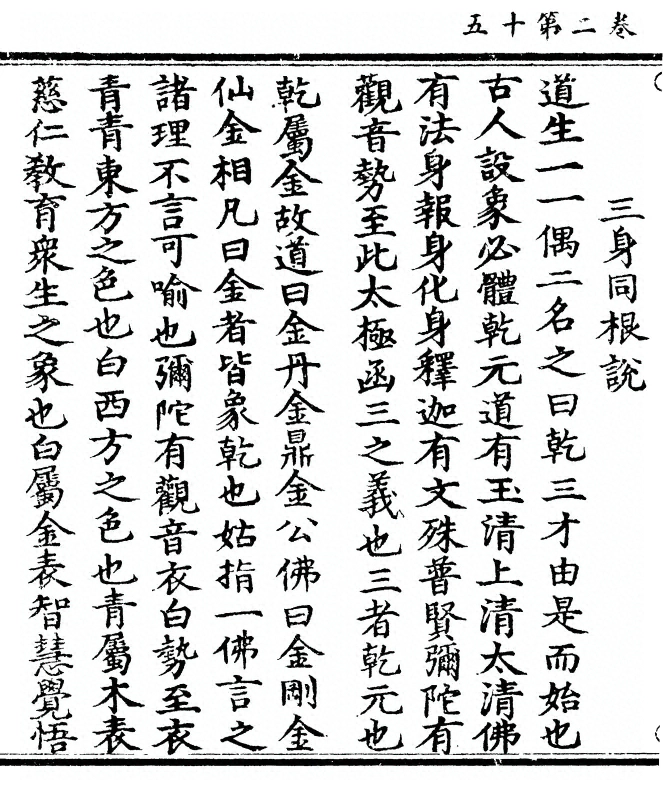 五十第二卷
三身同根說
道生一一偶二名之曰乾三才由是而始也
古人設象必體乾元道有玉清上清太清佛
有法身報身化身釋迦有文殊普賢彌陀有
觀音勢至此太極函三之義也三者乾元也
乾屬金故道曰金丹金鼎金公佛曰金剛金
仙金相凡曰金者皆象乾也姑指一佛言之
諸理不言可喻也彌陀有觀音衣白勢至衣
青青東方之色也白西方之色也青屬木表
慈仁教育衆生之象也白屬金表智慧覺悟